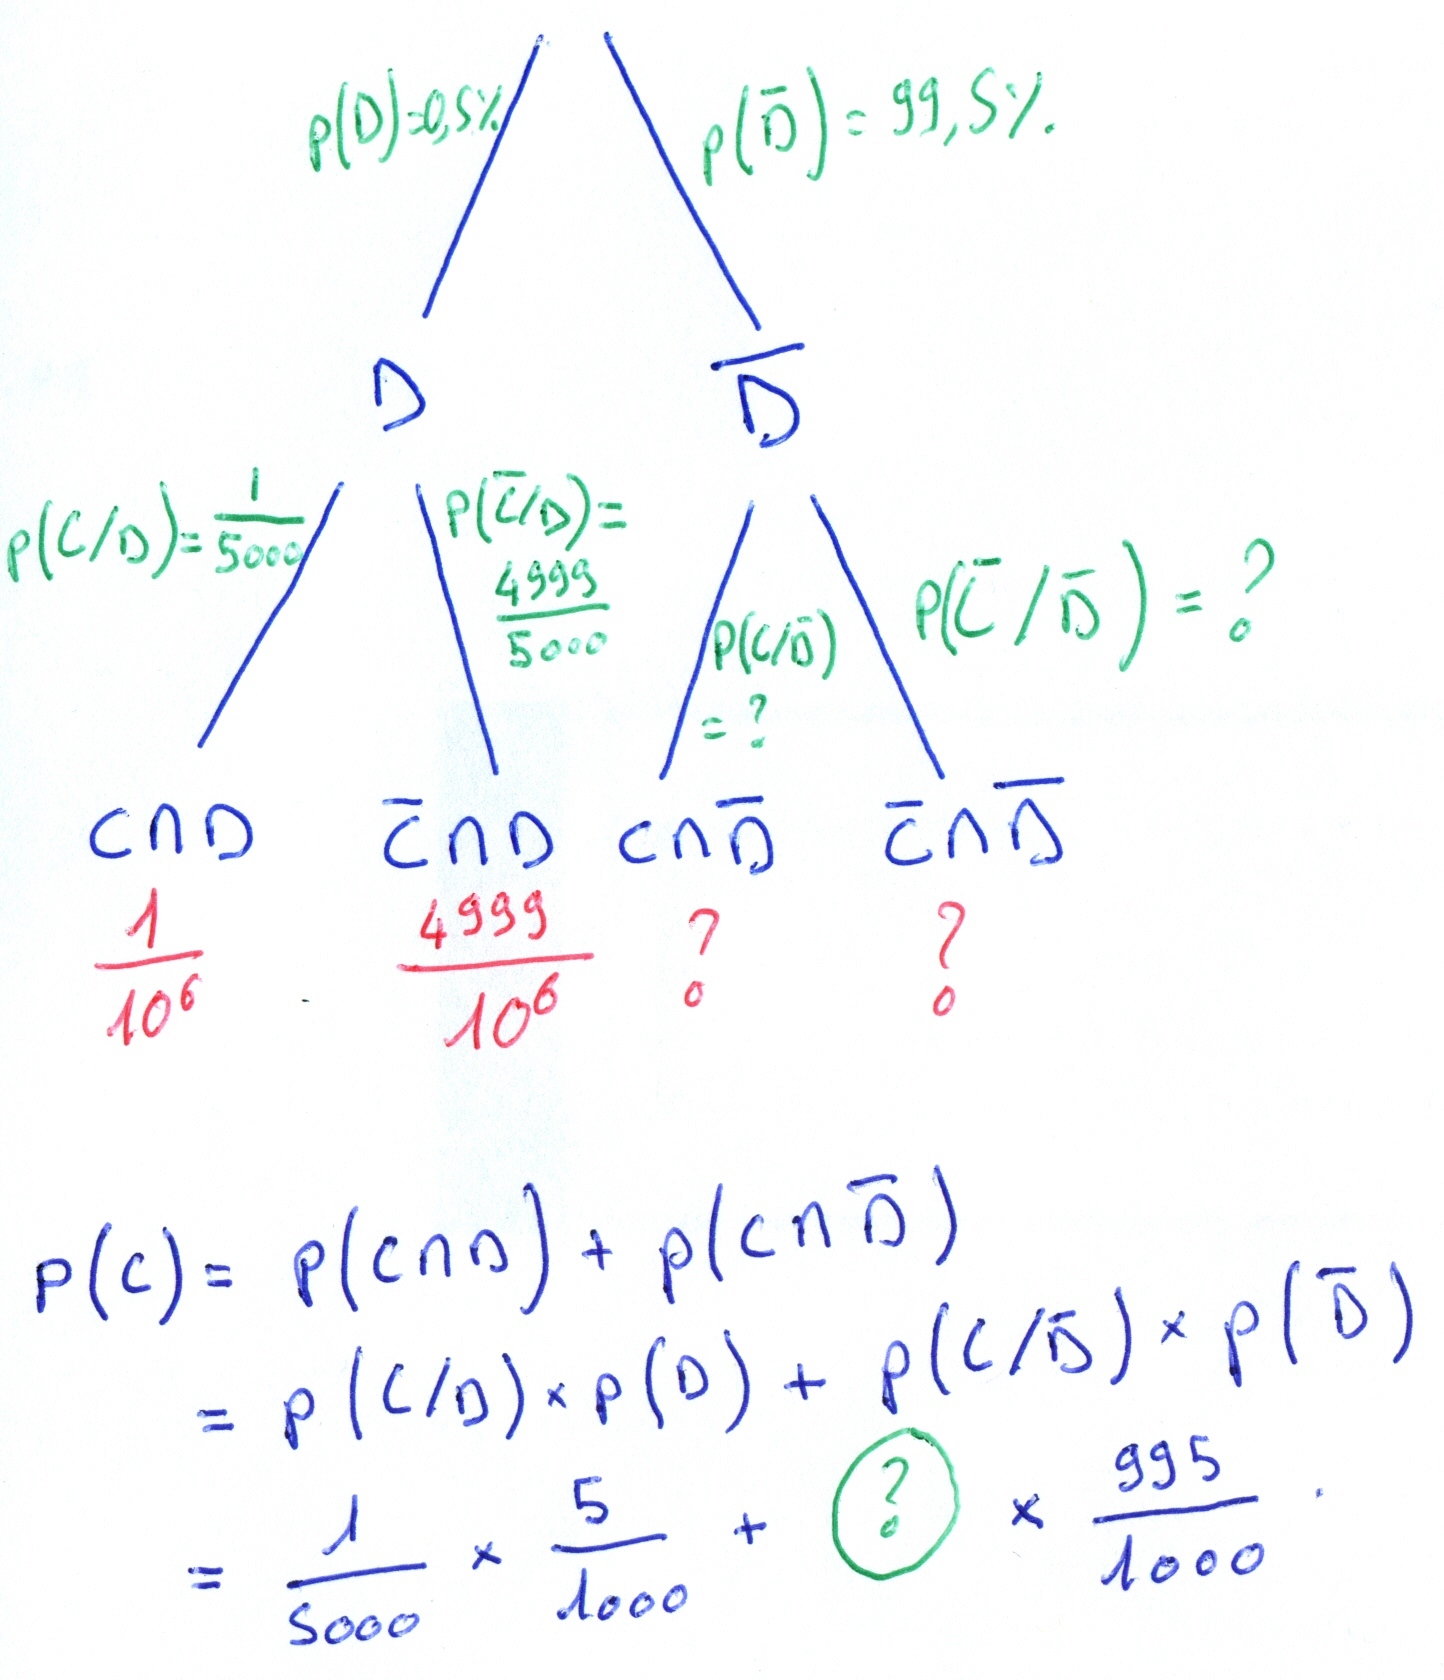 p(D)=0,5%
p(D̄) = 99,5%.
D
D̄
p(C/D)= 1/5000
p(C̄/D)= 4999/5000
p(C/D̄) = ?
p(C̄/D̄) = ?
C∩D
C̄∩D
C∩D̄
C̄∩D̄
1/10⁶
4999/10⁶
?
?
p(C)= p(C∩D) + p(C∩D̄)
= p(C/D) × p(D) + p(C/D̄) × p(D̄)
= 1/5000 × 5/1000 + ? × 995/1000 .